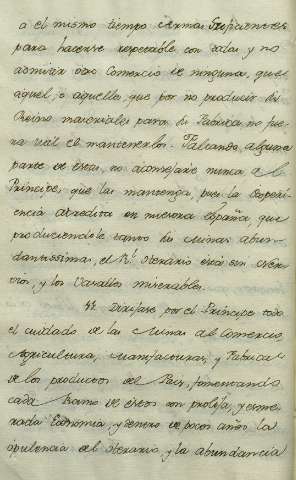 a el mismo tiempo Armas suficientes
para hacerse respetable con todas y no
admitir otro Comercio de ninguna, que
aquel, o aquellos, que por no producir su
Reino materiales para su Fabrica no fue
ra util el mantenerlos. Faltando alguna
parte de estas, no aconsejaré nunca a el
Principe, que las mantenga, pues la experi
encia acredita en nuestra España, que
produciendole tanto sus Minas abun
dantissimas, el Rl. Herario está sin Ner
vios, y los Vasallos miserables.
44. Dirijase por el Principe todo
el cuidado de las Minas al Comercio,
Agricultura, Manifacturas, y Fabricas
de los productos del Pais, fomentando
cada Ramo de estos con prolija, y esme
rada Economia, y dentro de pocos años la
opulencia del Herario, y la abundancia